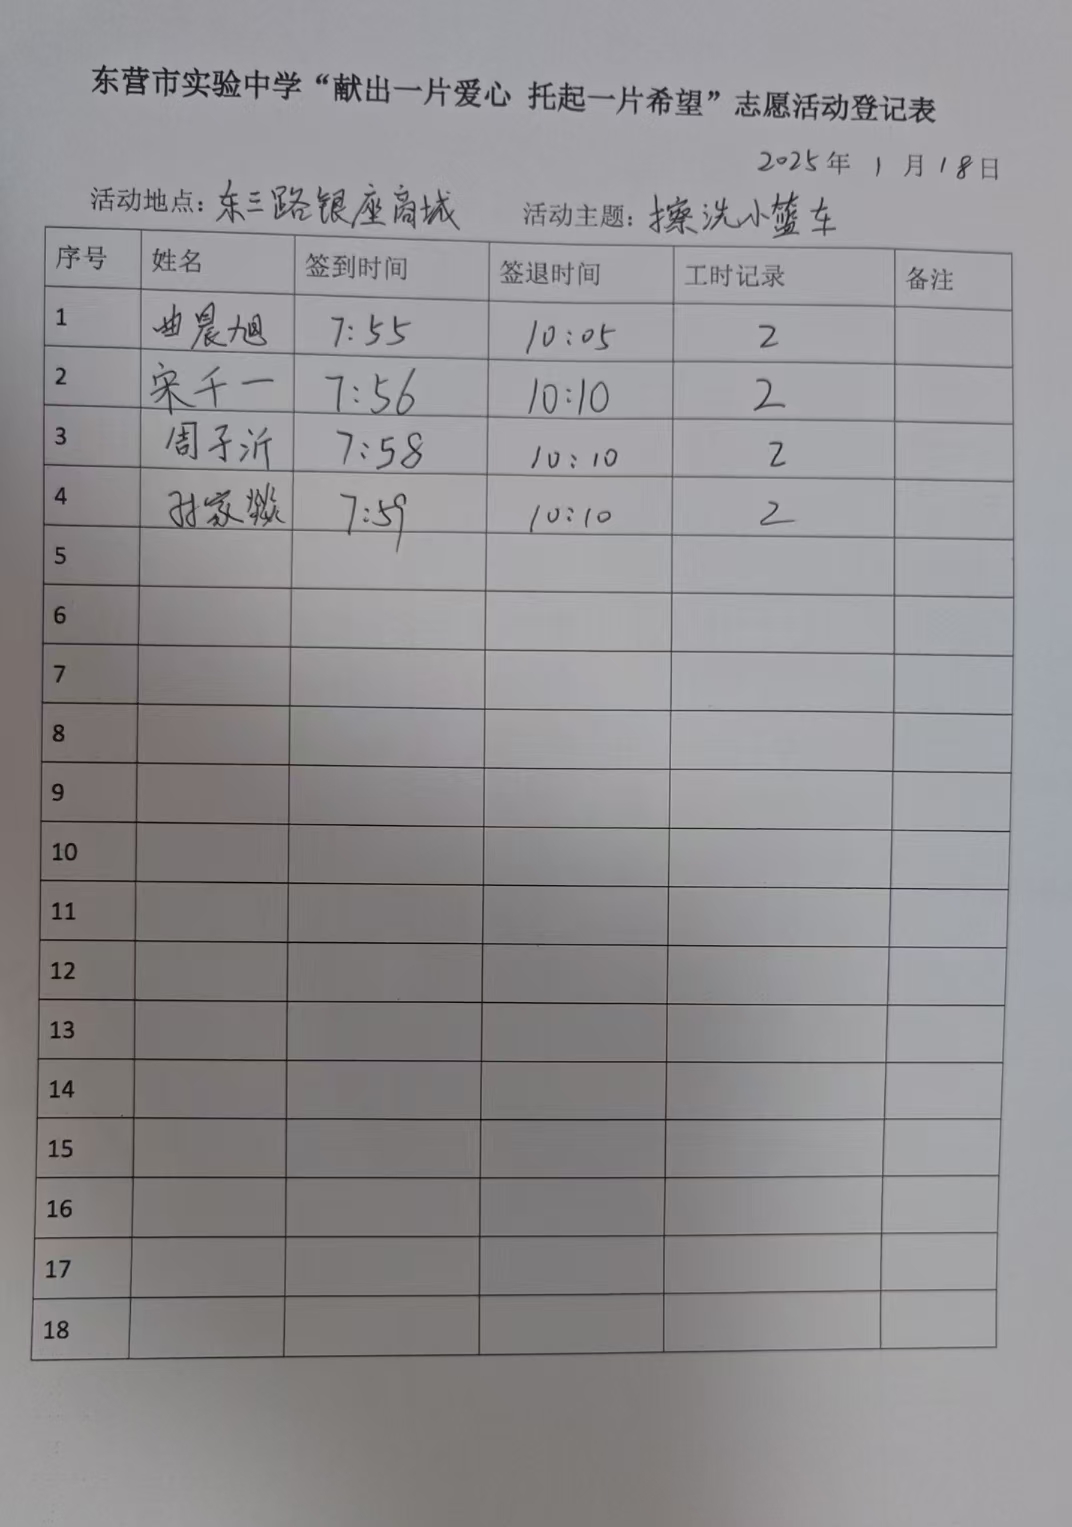 东营市实验中学“献出一片爱心 托起一片希望”志愿活动登记表
2025年 1 月 18日
活动地点：东三路银座商城 活动主题：擦洗小篮车
序号 姓名 签到时间 签退时间 工时记录 备注
1 曲晨旭 7:55 10:05 2
2 宋千一 7:56 10:10 2
3 周子沂 7:58 10:10 2
4 孙家 7:59 10:10 2
5
6
7
8
9
10
11
12
13
14
15
16
17
18